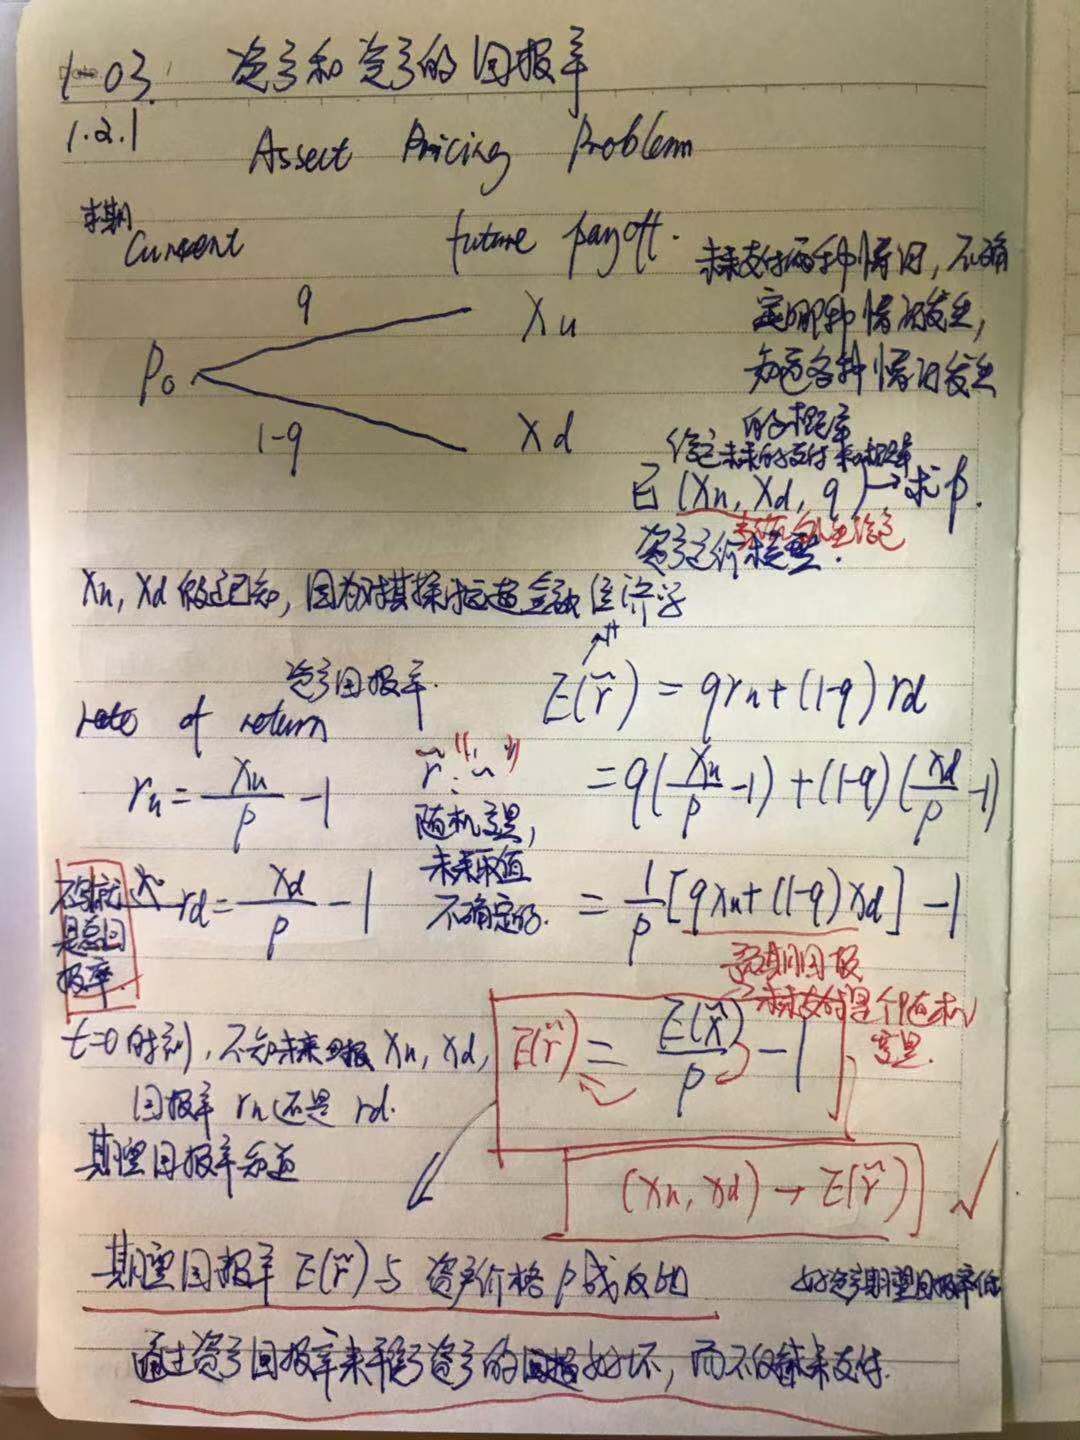 1-03. 资产和资产的回报率
1.2.1 Assect Pricing Problem
本期
Current future payoff.
未来支付两种情况，不确
定哪种情况发生，
知道各种情况发生
的概率
q
Xu
P₀
1-q
Xd
给定未来的支付和概率
已(Xu, Xd, q)→求p.
资产定价模型.
Xu, Xd 假定已知，因为对其探讨远超金融经济学
资产回报率.
rate of return
E(r̃) = qru+(1-q)rd
ru = Xu/p -1
r̃: "~"
随机变量,
未来取值
不确定的.
=q(Xu/p -1)+(1-q)(Xd/p -1)
rd= Xd/p -1
= 1/p [qXu+(1-q)Xd] -1
不减就
是总回
报率.
预期回报
未来支付是个随机
变量.
E(r̃) = E(x̃)/p -1
t=0时刻, 不知未来回报 Xu, Xd,
回报率 ru 还是 rd.
期望回报率知道
(Xu, Xd) → E(r̃) ✓
期望回报率 E(r̃)与资产价格p成反比
好资产期望回报率低
通过资产回报率来
资产的
好坏，而不仅
未来支付.